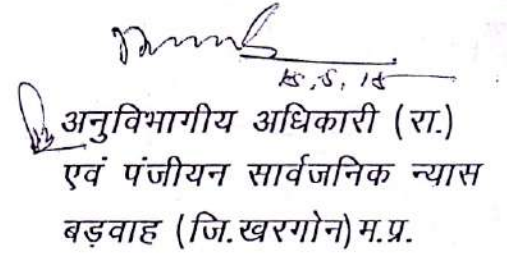 अनुविभागीय अधिकारी (रा.)
एवं पंजीयन सार्वजनिक न्यास
बड़वाह (जि.खरगोन) म.प्र.